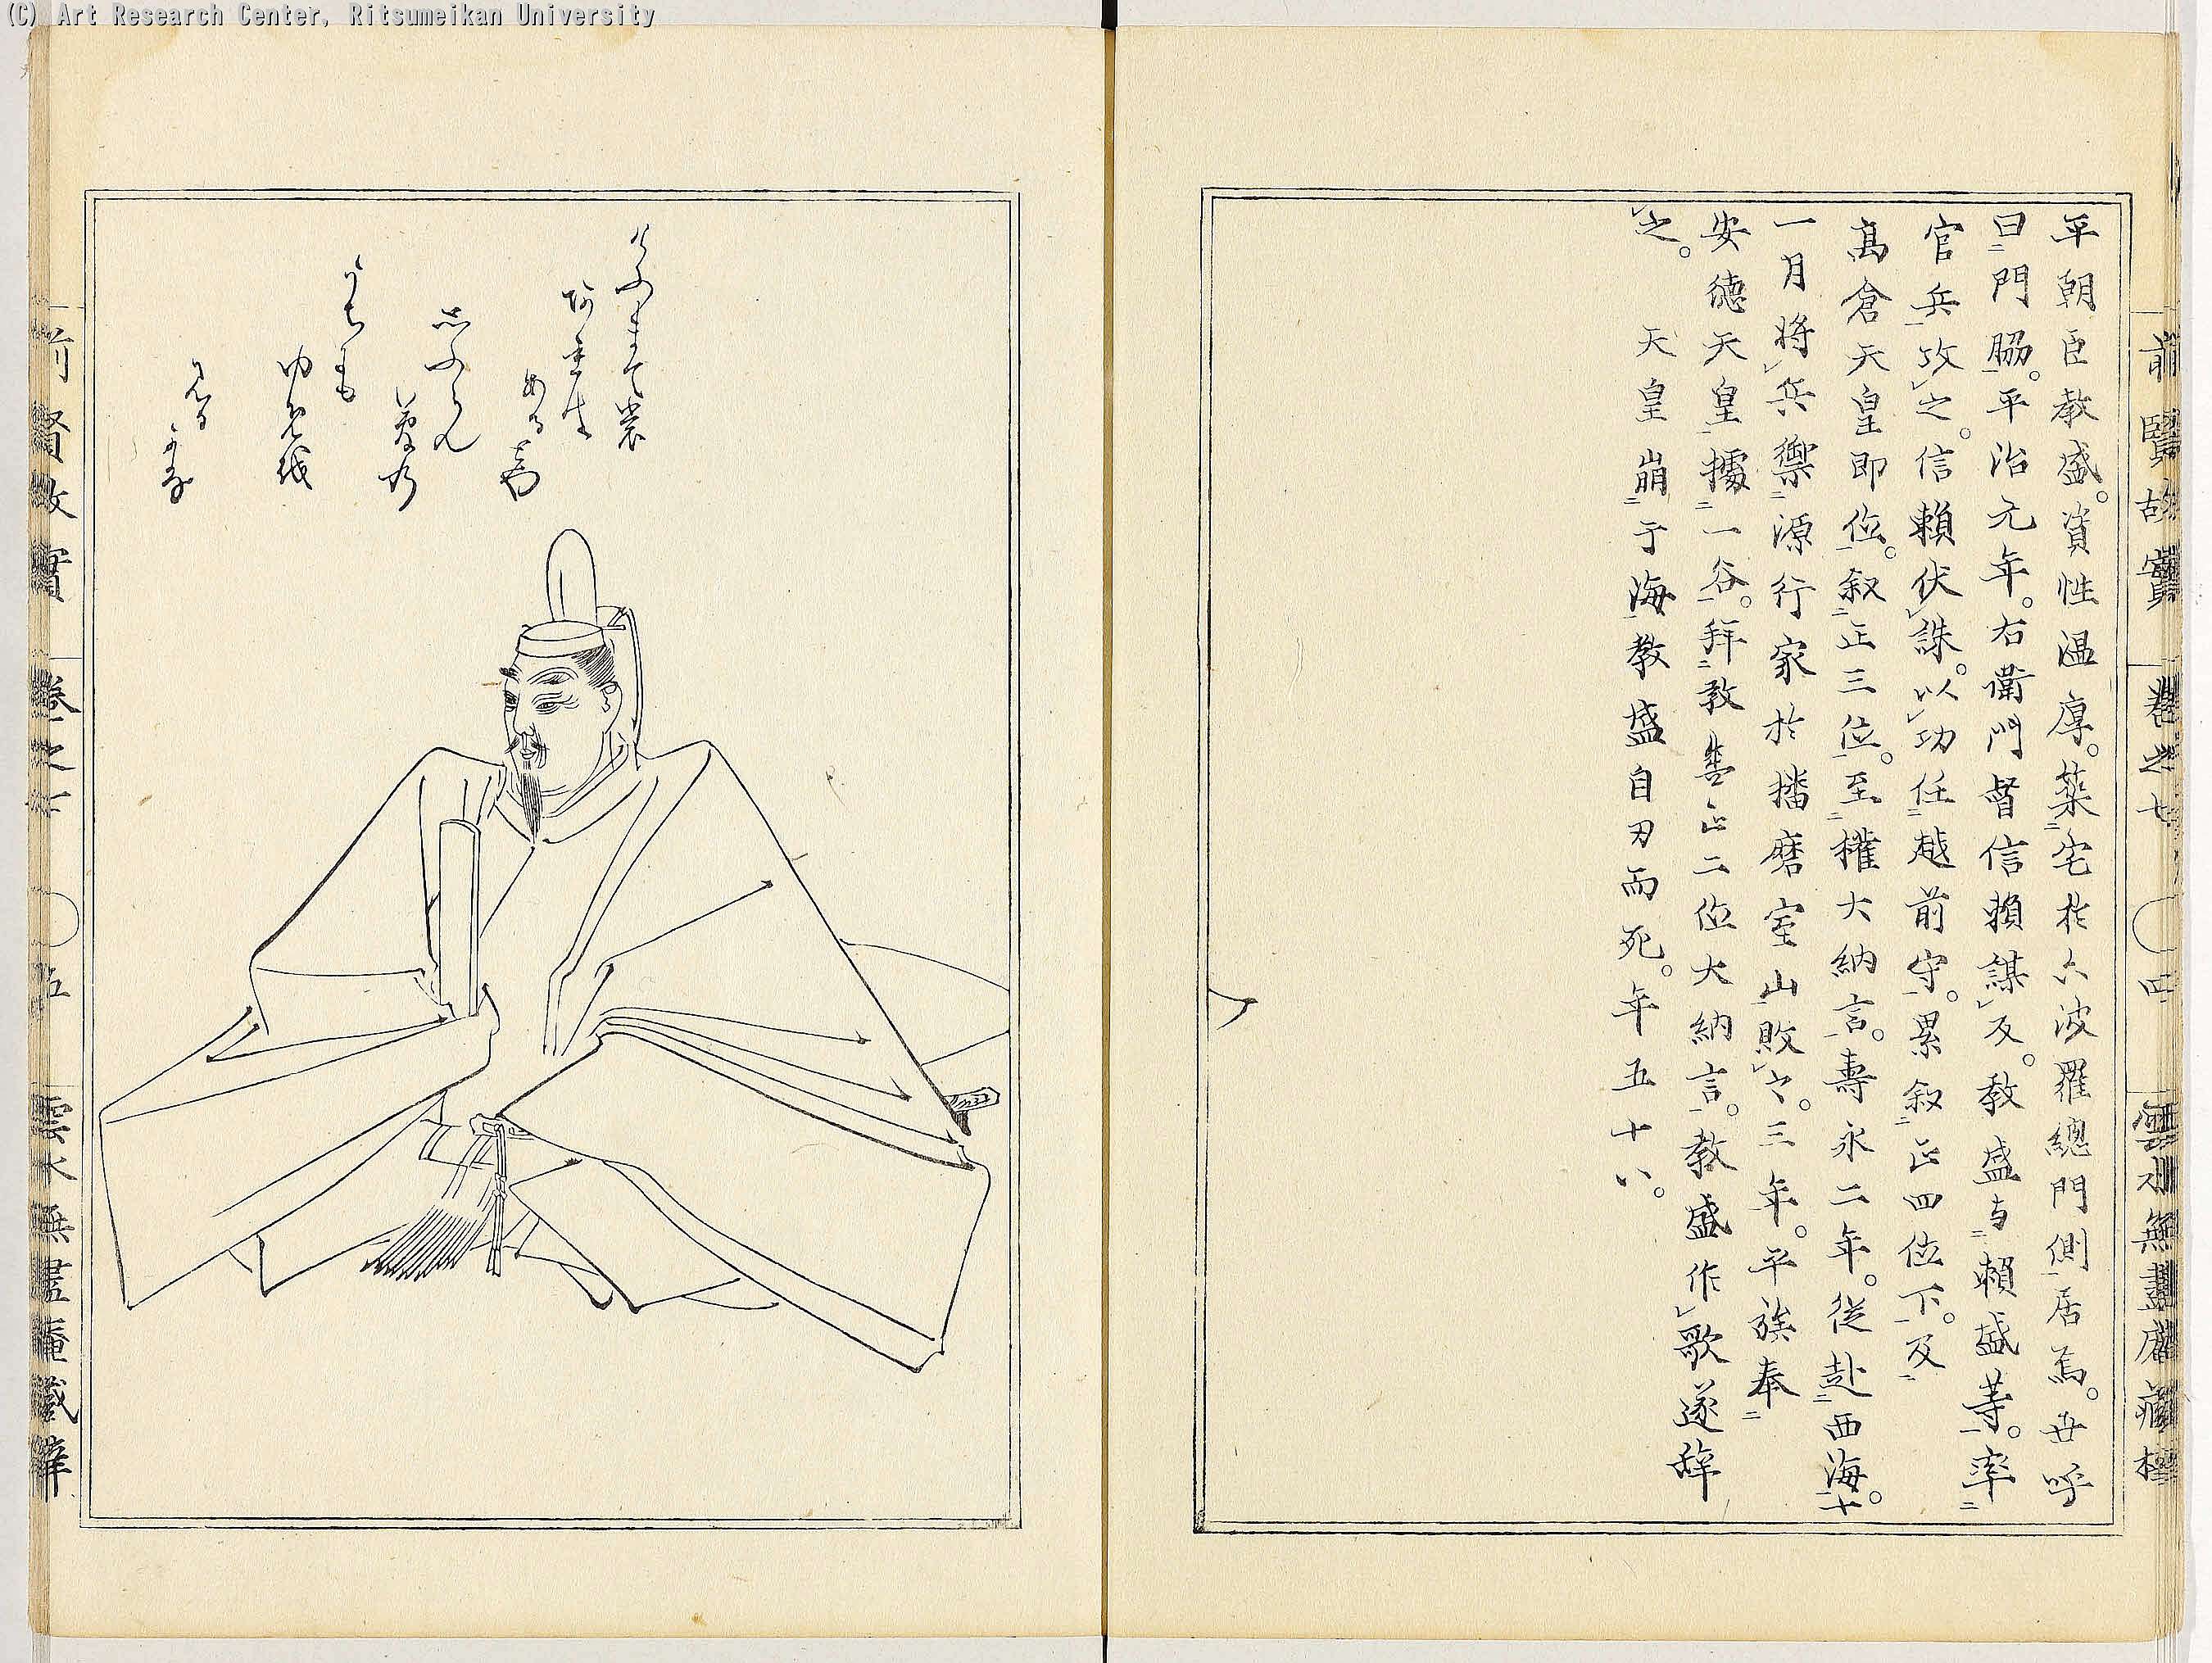 (C) Art Research Center, Ritsumeikan University
前賢故實 卷之七 四 雲水無盡庵藏梓
平朝臣教盛。資性温厚。築宅於六波羅總門側居焉。世呼
曰門脇。平治元年。右衞門督信賴謀反。教盛与賴盛等。率
官兵攻之。信賴伏誅。以功任越前守。累叙正四位下。及
高倉天皇即位。叙正三位。至權大納言。壽永二年。從赴西海。十
一月將兵禦源行家於播磨室山敗之。三年。平族奉
安德天皇據一谷。拜教盛正二位大納言。教盛作歌遂辞
之。天皇崩于海教盛自刃而死。年五十八。
けふまて裳
夢乃
うちにも
ゆめ越
みる
可な
前賢故實 卷之七 五 雲水無盡庵藏梓